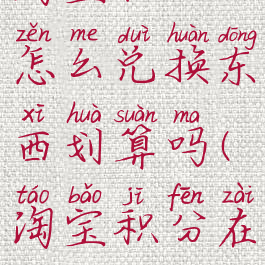 zěn me duì huàn dōng
怎么兑换东
xī huà suàn ma
西划算吗(
táo bǎo jī fēn zài
淘宝积分在